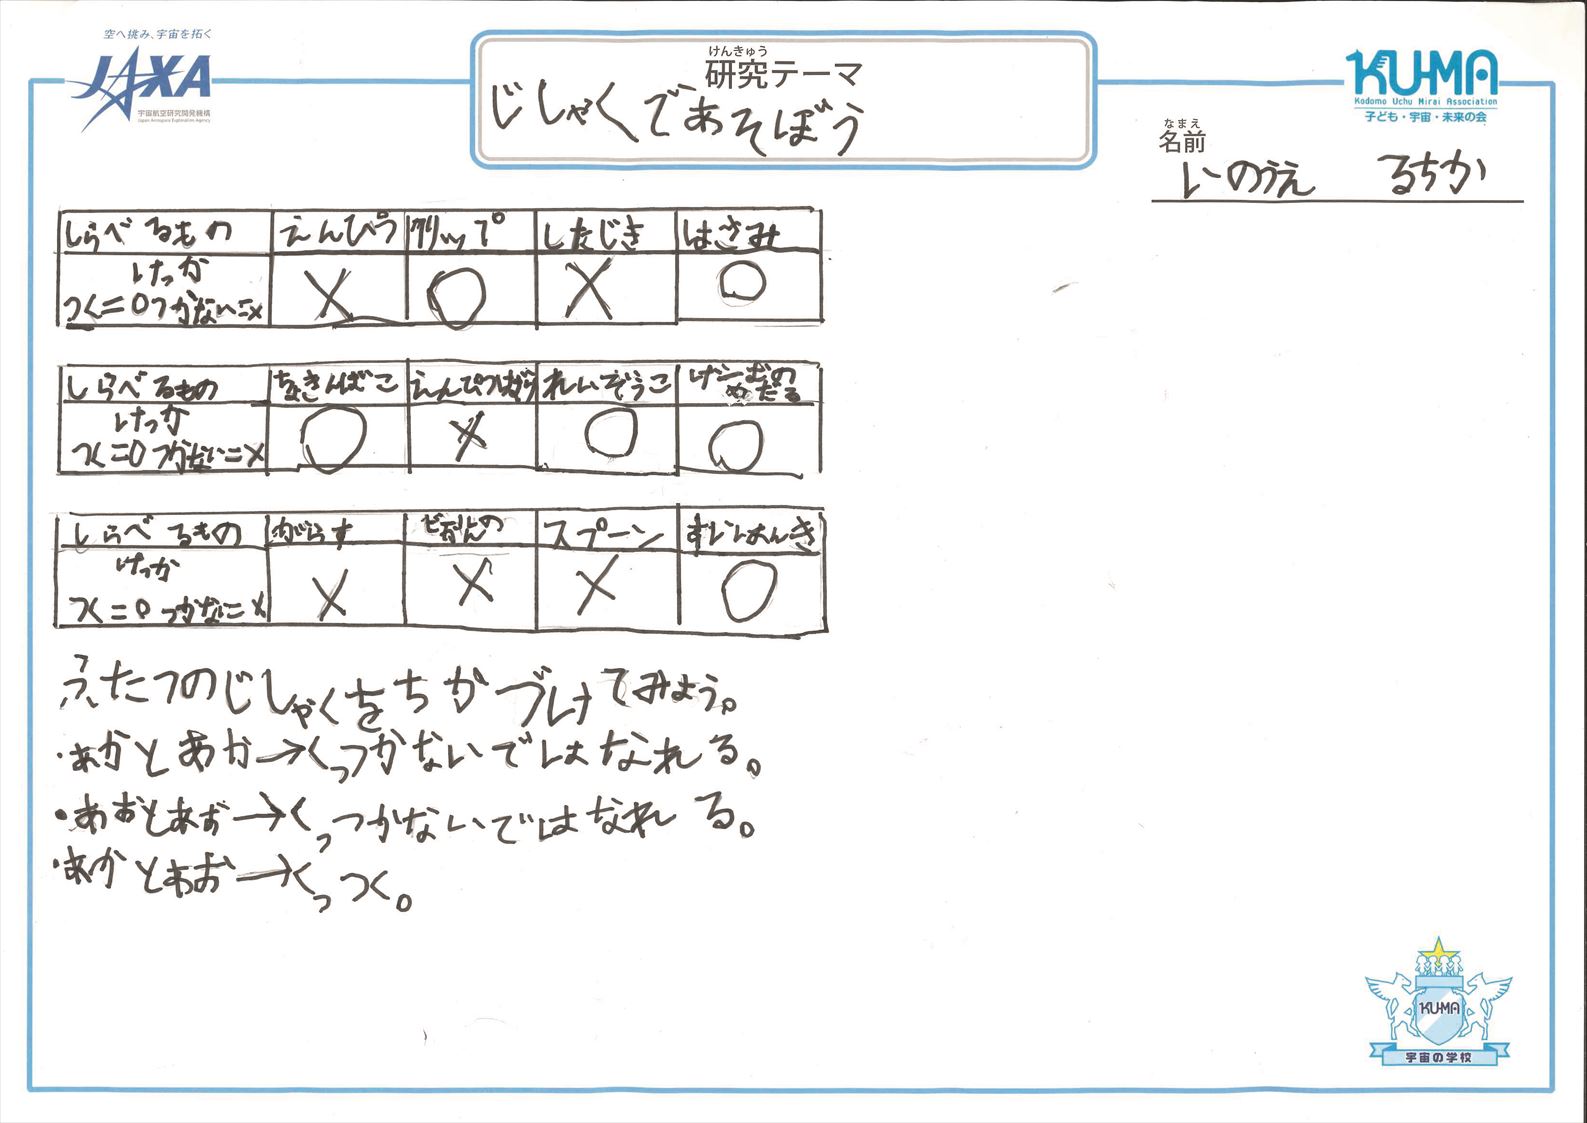 空へ挑み、宇宙を拓く
JAXA
宇宙航空研究開発機構
Japan Aerospace Exploration Agency
けんきゅう
研究テーマ
じしゃくであそぼう
KU-MA
Kodomo Uchu Mirai Association
子ども・宇宙・未来の会
なまえ
名前
いのうえ るちか
しらべるもの えんぴつ クリップ したじき はさみ
けっか
つく=○つかない=× × ○ × ○
しらべるもの ちょきんばこ えんぴつ れいぞうこ げーむの
めだる
けっか
つく=○つかない=× ○ × ○ ○
しらべるもの がらす スプーン すいはんき
けっか
つく=○つかな=× × × × ○
ふたつのじしゃくをちかづけてみよう。
・あかとあか→くっつかないではなれる。
・あおとあお→くっつかないではなれる。
・あかとあお→くっつく。
KU-MA
宇宙の学校